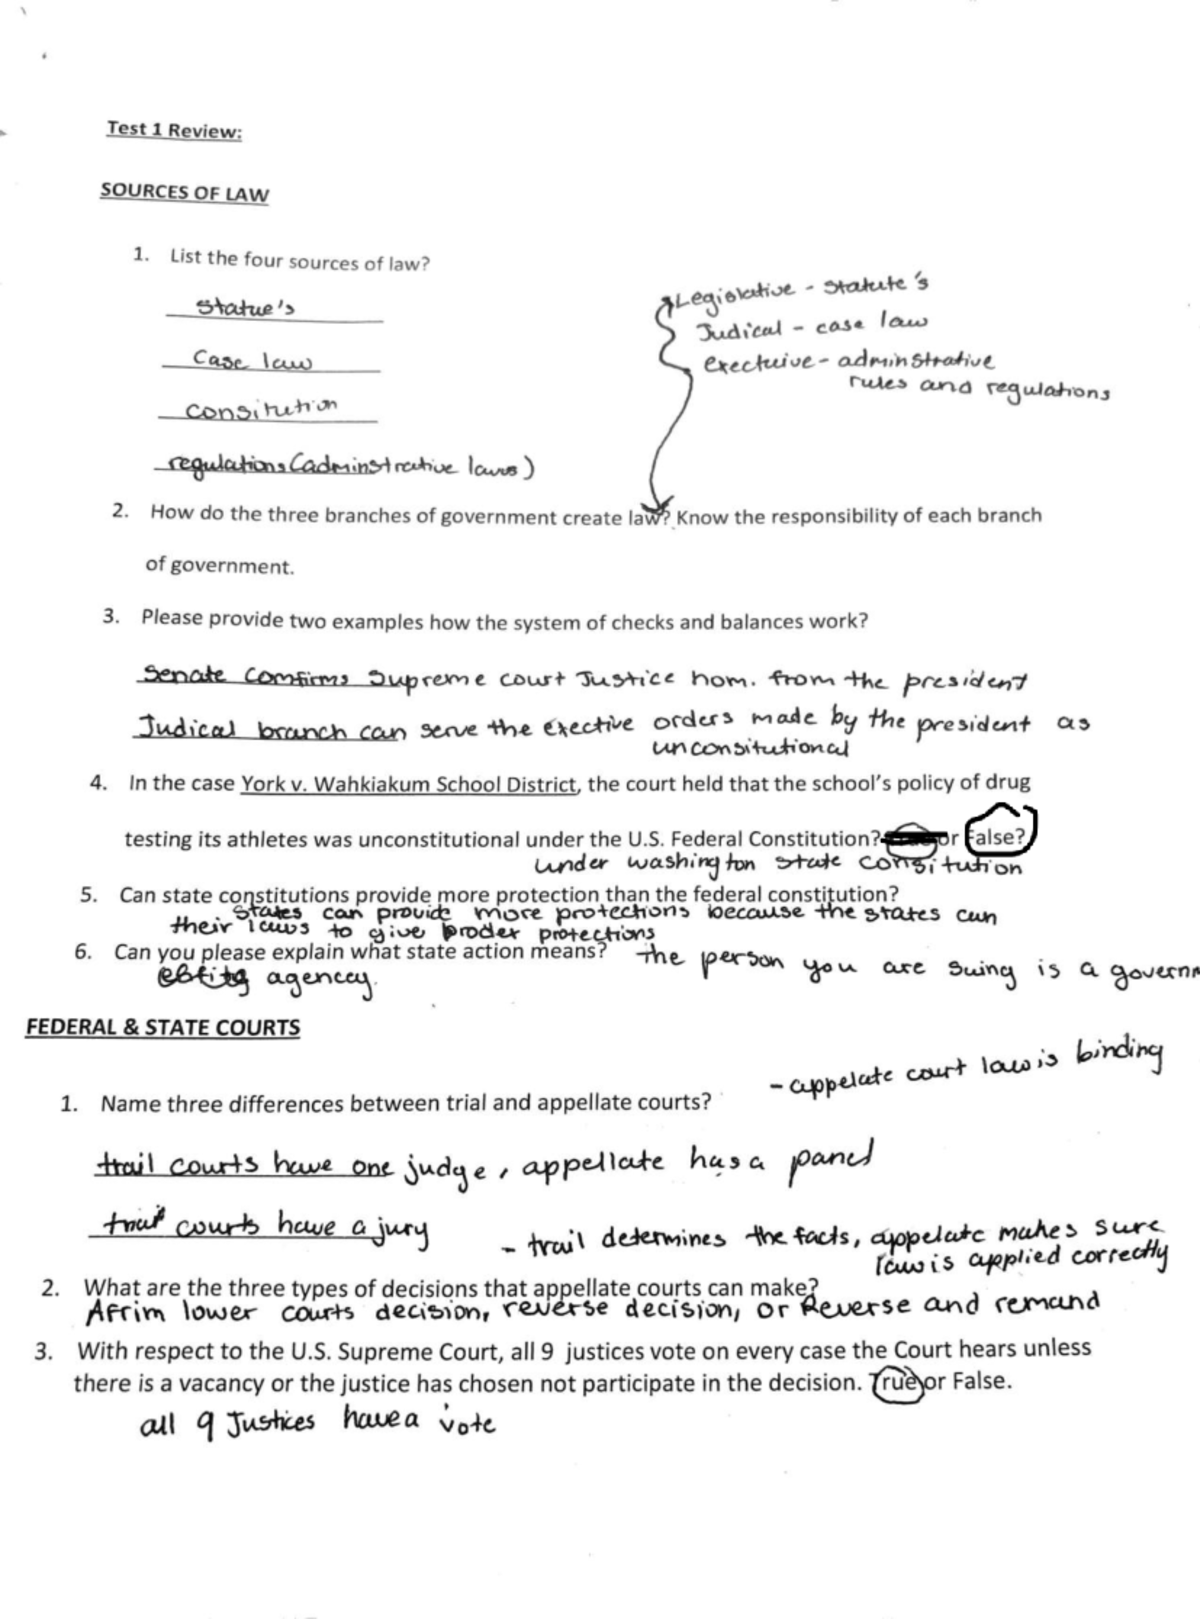 Test 1 Review:
SOURCES OF LAW
1. List the four sources of law?
Statue's
Case law
Consitution
regulations (adminstrative laws)
Legislative - Statute's
Judical - case law
exectuive - adminstrative
rules and regulations
2. How do the three branches of government create law? Know the responsibility of each branch
of government.
3. Please provide two examples how the system of checks and balances work?
Senate comfirms Supreme court Justice nom. from the president
Judical branch can serve the exective orders made by the president as
unconsitutional
4. In the case York v. Wahkiakum School District, the court held that the school's policy of drug
testing its athletes was unconstitutional under the U.S. Federal Constitution? or False?
under washington state consitution
5. Can state constitutions provide more protection than the federal constitution?
states can provide more protections because the states can
their laws to give broder protections
6. Can you please explain what state action means? The person you are suing is a governm
agencey.
FEDERAL & STATE COURTS
- appelate court law is binding
1. Name three differences between trial and appellate courts?
trail courts have one judge, appellate has a panel
trail courts have a jury
- trail determines the facts, appelate makes sure
law is applied correctly
2. What are the three types of decisions that appellate courts can make?
Affrim lower courts decision, reverse decision, or Reverse and remand
3. With respect to the U.S. Supreme Court, all 9 justices vote on every case the Court hears unless
there is a vacancy or the justice has chosen not participate in the decision. True or False.
all 9 Justices have a vote